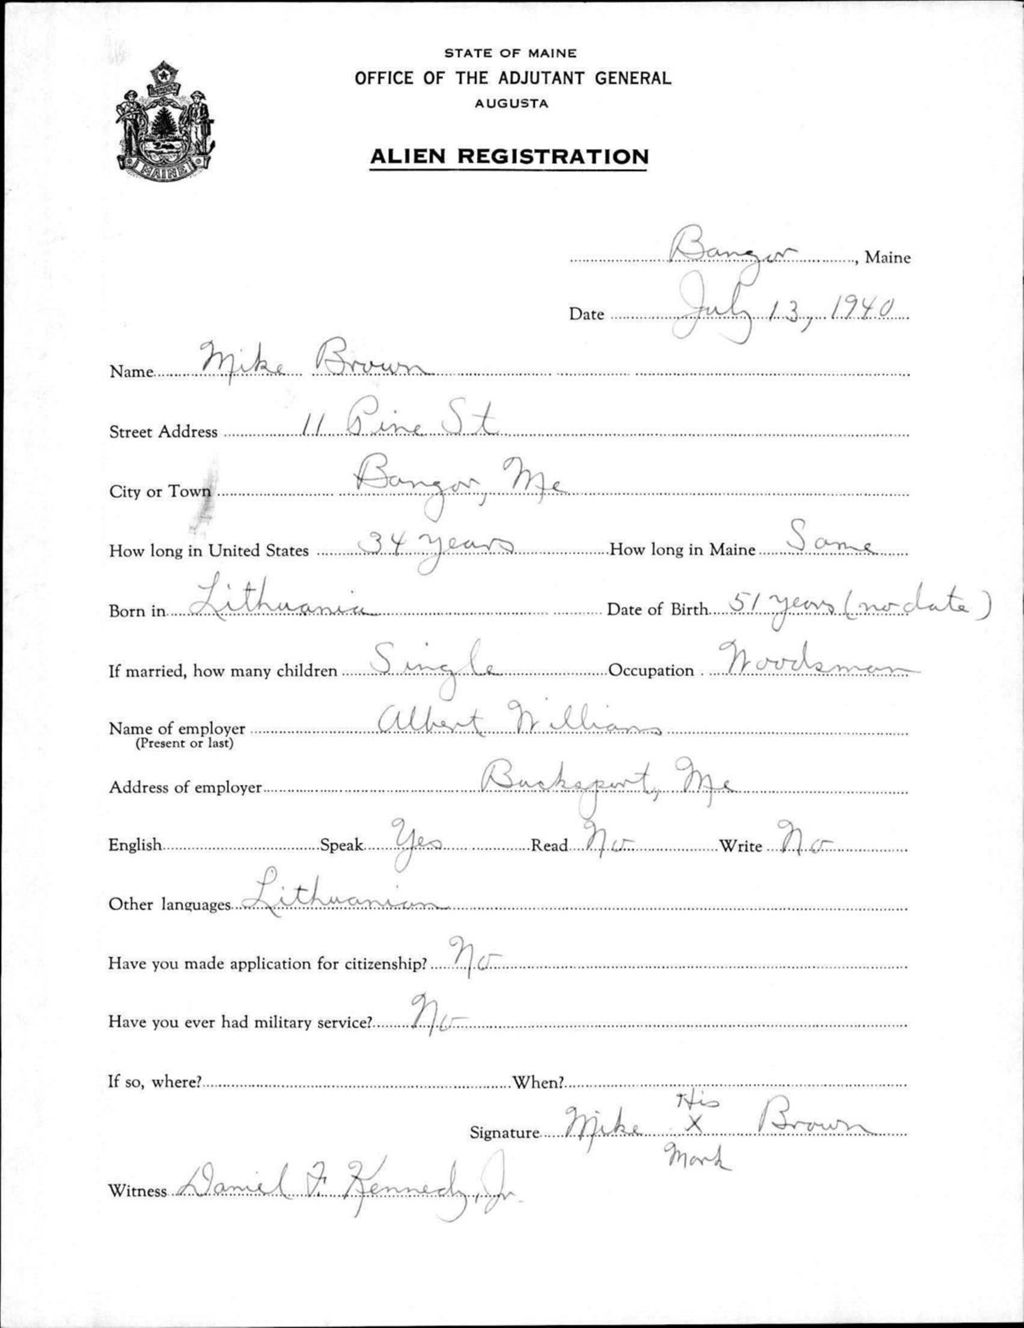 STATE OF MAINE
OFFICE OF THE ADJUTANT GENERAL
AUGUSTA
ALIEN REGISTRATION
MAINE
Bangor, Maine
Date July 13, 1940
Name Mike Brown
Street Address 11 Pine St
City or Town Bangor, Me
How long in United States 34 years How long in Maine Same
Born in Lithuania Date of Birth 51 years (no date)
If married, how many children Single Occupation Woodsman
Name of employer Albert Williams
(Present or last)
Address of employer Bucksport, Me
English Speak Yes Read No Write No
Other languages Lithuanian
Have you made application for citizenship? No
Have you ever had military service? No
If so, where? When?
His
Signature Mike X Brown
Mark
Witness Daniel F. Kennedy, Jr.